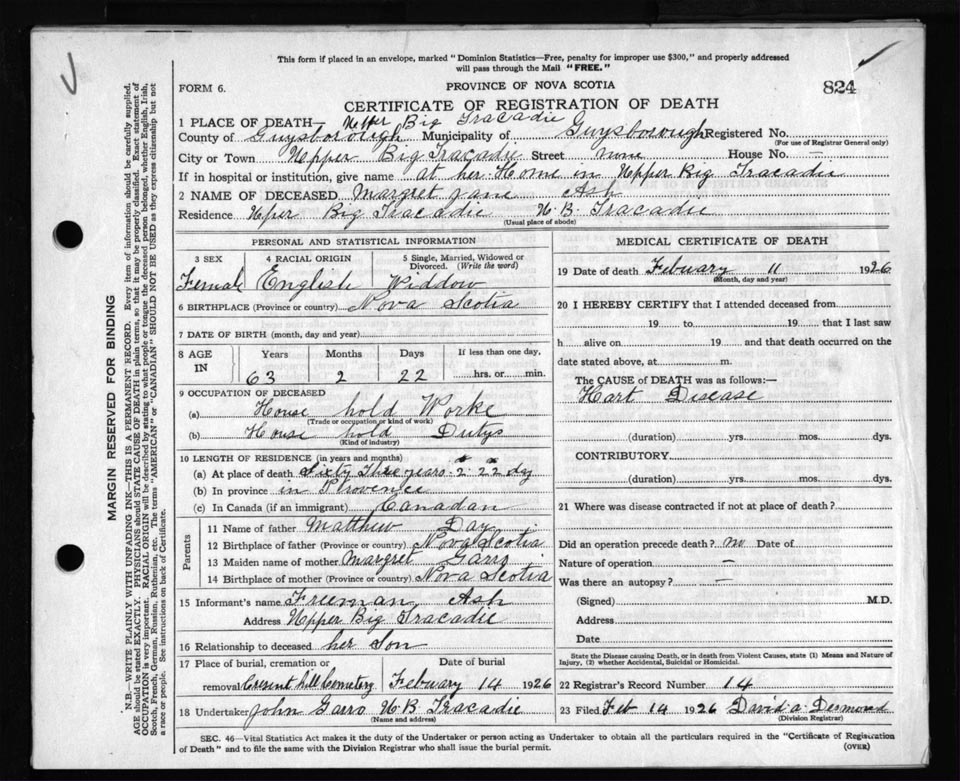 This form if placed in an envelope, marked "Dominion Statistics—Free, penalty for improper use $300," and properly addressed
will pass through the Mail "FREE."
FORM 6.
PROVINCE OF NOVA SCOTIA
824
CERTIFICATE OF REGISTRATION OF DEATH
1 PLACE OF DEATH— Upper Big Tracadie
County of Guysborough Municipality of Guysborough Registered No.
(For use of Registrar General only)
City or Town Upper Big Tracadie Street none House No. —
If in hospital or institution, give name at her Home in Upper Big Tracadie
2 NAME OF DECEASED Margret Jane Ash
Residence Upper Big Tracadie U. B. Tracadie
(Usual place of abode)
PERSONAL AND STATISTICAL INFORMATION
3 SEX
Female
4 RACIAL ORIGIN
English
5 Single, Married, Widowed or
Divorced. (Write the word)
Widdow
6 BIRTHPLACE (Province or country) Nova Scotia
7 DATE OF BIRTH (month, day and year)
8 AGE IN
Years Months Days If less than one day,
63 2 22 hrs. or min.
9 OCCUPATION OF DECEASED
(a) House hold Worke
(Trade or occupation or kind of work)
(b) House hold Dutys
(Kind of industry)
10 LENGTH OF RESIDENCE (in years and months)
(a) At place of death Sixty Three years - 2 - 22 dy
(b) In province in Provence
(c) In Canada (if an immigrant) Canadan
Parents
11 Name of father Matthew Day
12 Birthplace of father (Province or country) Nova Scotia
13 Maiden name of mother Margret Garro
14 Birthplace of mother (Province or country) Nova Scotia
15 Informant's name Freeman Ash
Address Upper Big Tracadie
16 Relationship to deceased her Son
17 Place of burial, cremation or Date of burial
removal Cresent hill Cemetery Febuary 14 1926
18 Undertaker John Garro U. B. Tracadie
(Name and address)
MEDICAL CERTIFICATE OF DEATH
19 Date of death Febuary 11 1926
(Month, day and year)
20 I HEREBY CERTIFY that I attended deceased from
19 to 19 that I last saw
h alive on 19 and that death occurred on the
date stated above, at m.
The CAUSE of DEATH was as follows:—
Hart Disease
(duration) yrs. mos. dys.
CONTRIBUTORY
(duration) yrs. mos. dys.
21 Where was disease contracted if not at place of death?
Did an operation precede death? no Date of
Nature of operation —
Was there an autopsy? —
(Signed) M.D.
Address
Date
State the Disease causing Death, or in death from Violent Causes, state (1) Means and Nature of
Injury, (2) whether Accidental, Suicidal or Homicidal.
22 Registrar's Record Number 14
23 Filed Feb 14 1926 David a Desmond
(Division Registrar)
SEC. 46—Vital Statistics Act makes it the duty of the Undertaker or person acting as Undertaker to obtain all the particulars required in the "Certificate of Registration
of Death" and to file the same with the Division Registrar who shall issue the burial permit.
(OVER)
MARGIN RESERVED FOR BINDING
N.B.—WRITE PLAINLY WITH UNFADING INK—THIS IS A PERMANENT RECORD. Every item of information should be carefully supplied.
AGE should be stated EXACTLY. PHYSICIANS should STATE CAUSE OF DEATH in plain terms, so that it may be properly classified. Exact statement of
OCCUPATION is very important. RACIAL ORIGIN will be described by stating to what people or tongue the deceased person belonged, whether English, Irish,
Scotch, French, German, Russian, Ruthenian, etc. The terms "AMERICAN" or "CANADIAN" SHOULD NOT BE USED as they express citizenship but not
a race or people. See instructions on back of Certificate.